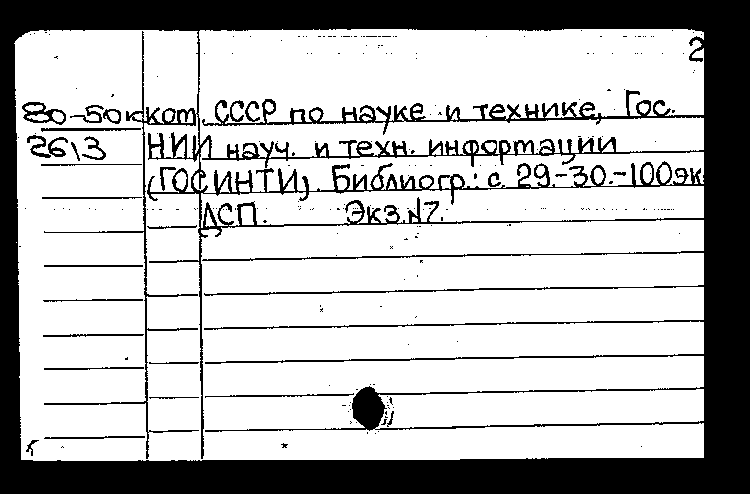 2
80-50к кот. СССР по науке и технике, Гос.
26\3 НИИ науч. и техн. информации
(ГОСИНТИ). Библиогр.: с. 29.-30.-100эк
ДСП. Экз.№7.